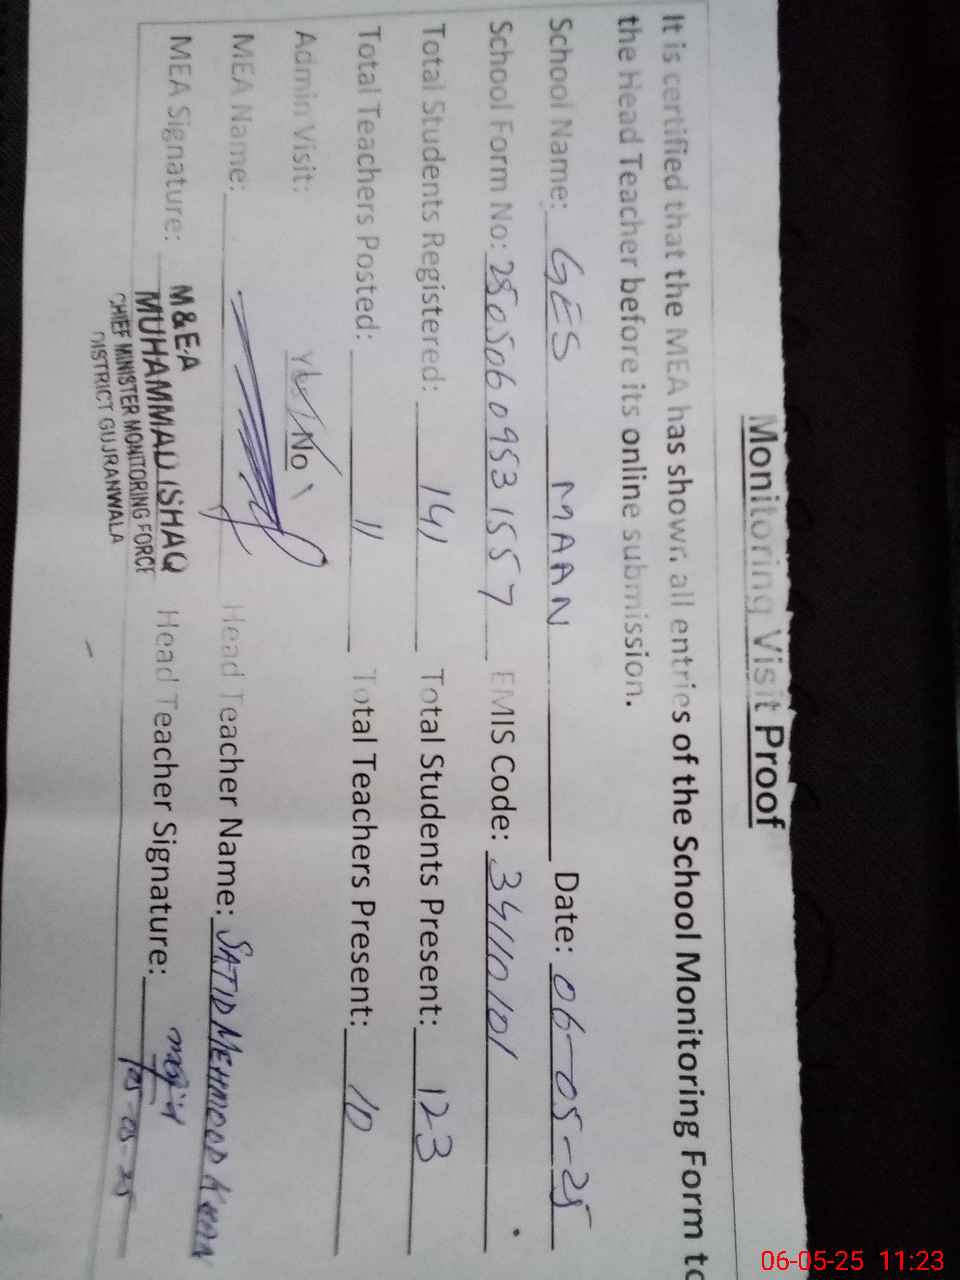 Monitoring Visit Proof
It is certified that the MEA has shown all entries of the School Monitoring Form to
the Head Teacher before its online submission.
School Name: GES MAAN Date: 06-05-25
School Form No: 2505060953 1557 EMIS Code: 34110101
Total Students Registered: 141 Total Students Present: 123
Total Teachers Posted: 11 Total Teachers Present: 10
Admin Visit: Yes/No
MEA Name: Head Teacher Name: SAJID MEHMOOD KHAN
MEA Signature: Head Teacher Signature:
M&EA
MUHAMMAD ISHAQ
CHIEF MINISTER MONITORING FORCE
DISTRICT GUJRANWALA
06-05-25 11:23